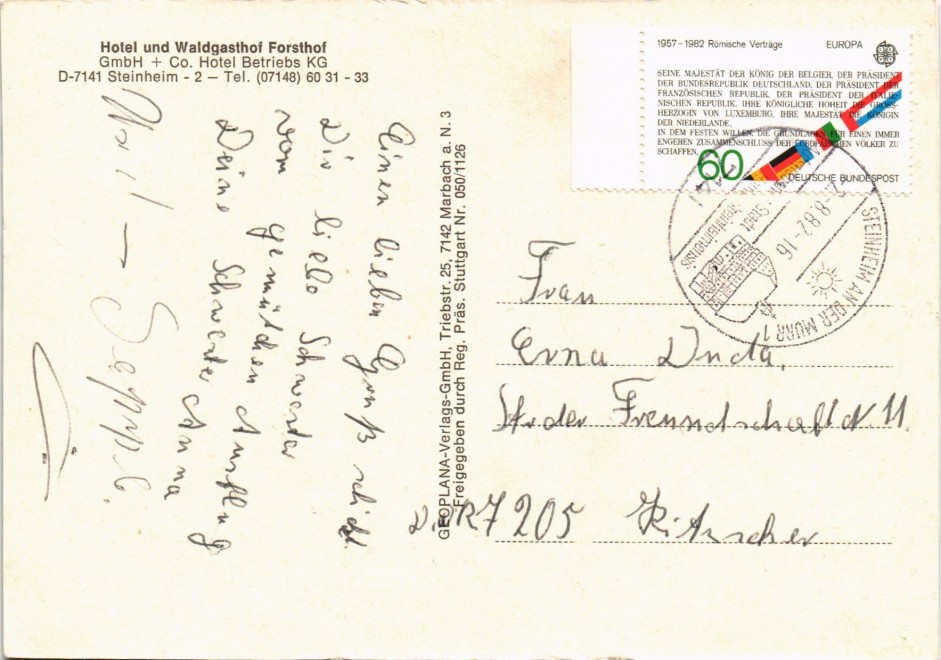 Hotel und Waldgasthof Forsthof
GmbH + Co. Hotel Betriebs KG
D-7141 Steinheim - 2 – Tel. (07148) 60 31 - 33
Einen lieben Gruß schickt
Dir liebe Schwester
vom gemütchen Ausflug
Deine Schwester Anna
Seppl.
GEOPLANA-Verlags-GmbH, Triebstr. 25, 7142 Marbach a. N. 3
Freigegeben durch Reg. Präs. Stuttgart Nr. 050/1126
1957–1982 Römische Verträge
EUROPA
SEINE MAJESTÄT DER KÖNIG DER BELGIER, DER PRÄSIDENT
DER BUNDESREPUBLIK DEUTSCHLAND, DER PRÄSIDENT DER
FRANZÖSISCHEN REPUBLIK, DER PRÄSIDENT DER ITALIE-
NISCHEN REPUBLIK, IHRE KÖNIGLICHE HOHEIT DIE GROSS-
HERZOGIN VON LUXEMBURG, IHRE MAJESTÄT DIE KÖNIGIN
DER NIEDERLANDE,
IN DEM FESTEN WILLEN, DIE GRUNDLAGEN FÜR EINEN IMMER
ENGEREN ZUSAMMENSCHLUSS DER EUROPÄISCHEN VÖLKER ZU
SCHAFFEN,
60
DEUTSCHE BUNDESPOST
8.82-16
STEINHEIM AN DER MURR 1
Frau
Erna Duda,
Str der Freundschaft N 11.
DDR 7205 Kitzscher